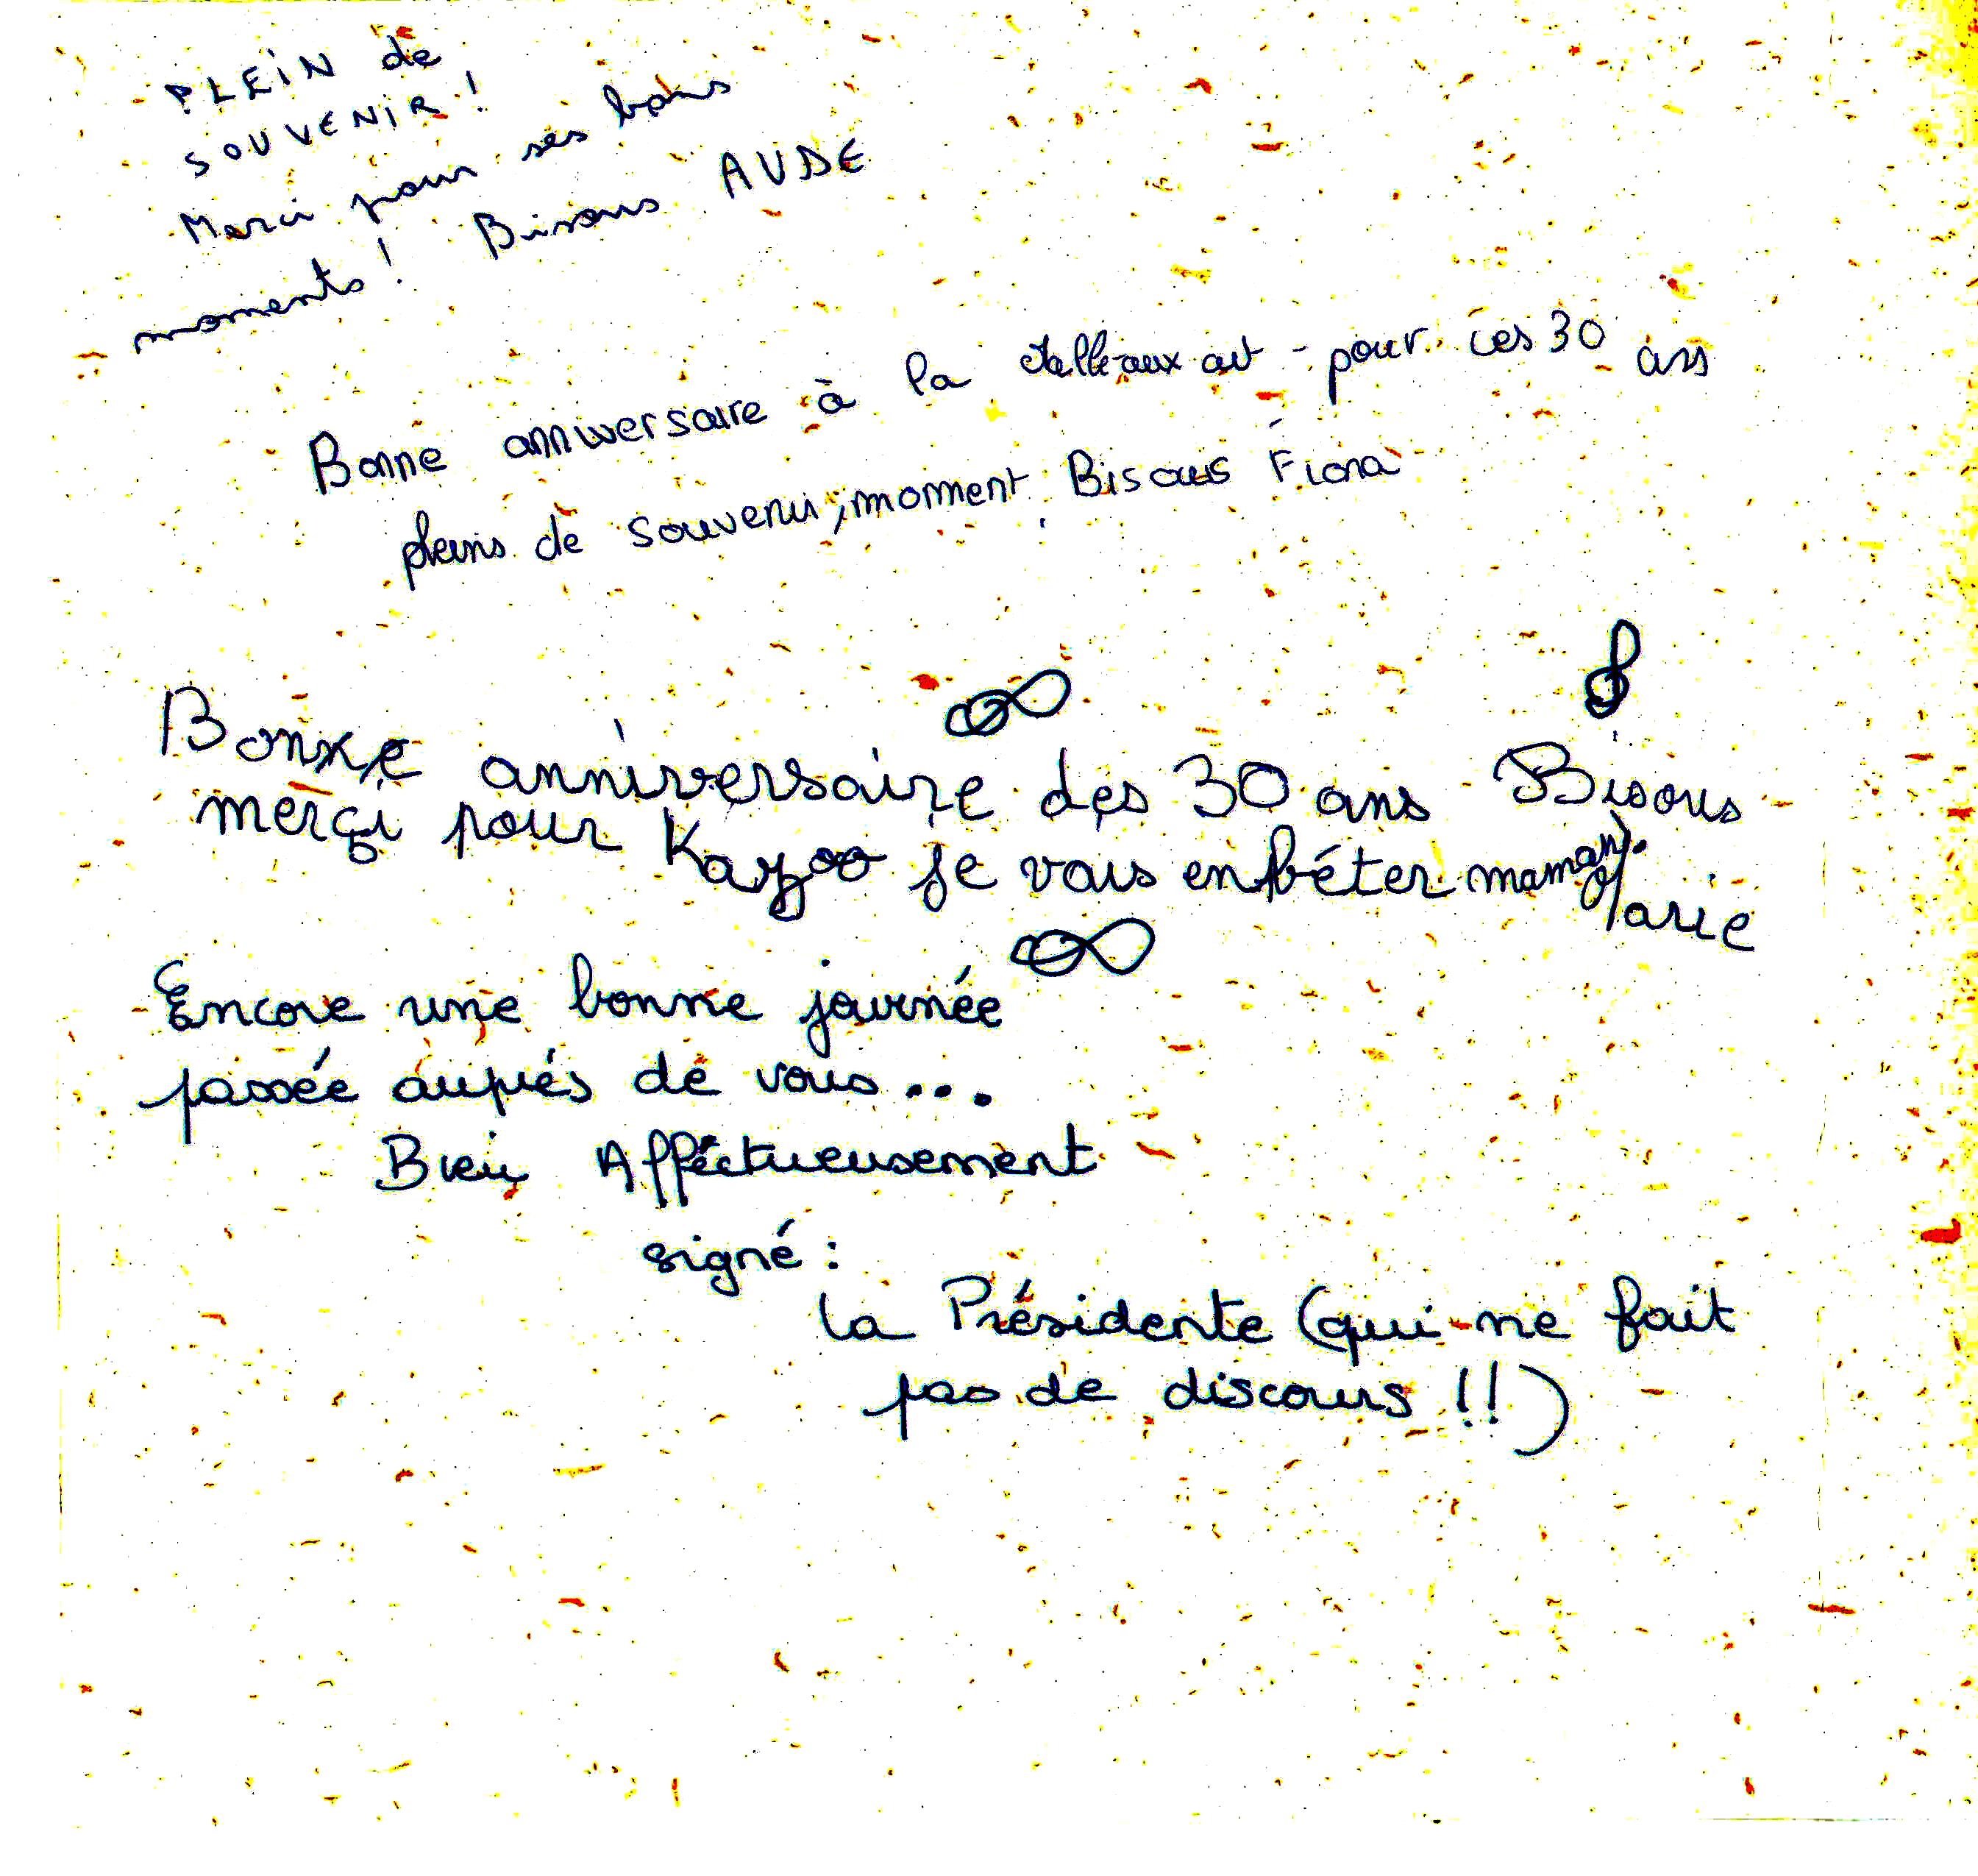 PLEIN de
SOUVENIR !
Merci pour ses bons
moments ! Bisous AUDE
Bonne anniversaire à la - pour ces 30 ans
pleins de souvenir, moment Bisous Fiona
Bonne anniversaire des 30 ans Bisous
merçi pour Kazoo je vais enbéter maman).
Marie
Encore une bonne journée
passée auprés de vous...
Bien Affectueusement
signé :
la Présidente (qui ne fait
pas de discours !!)